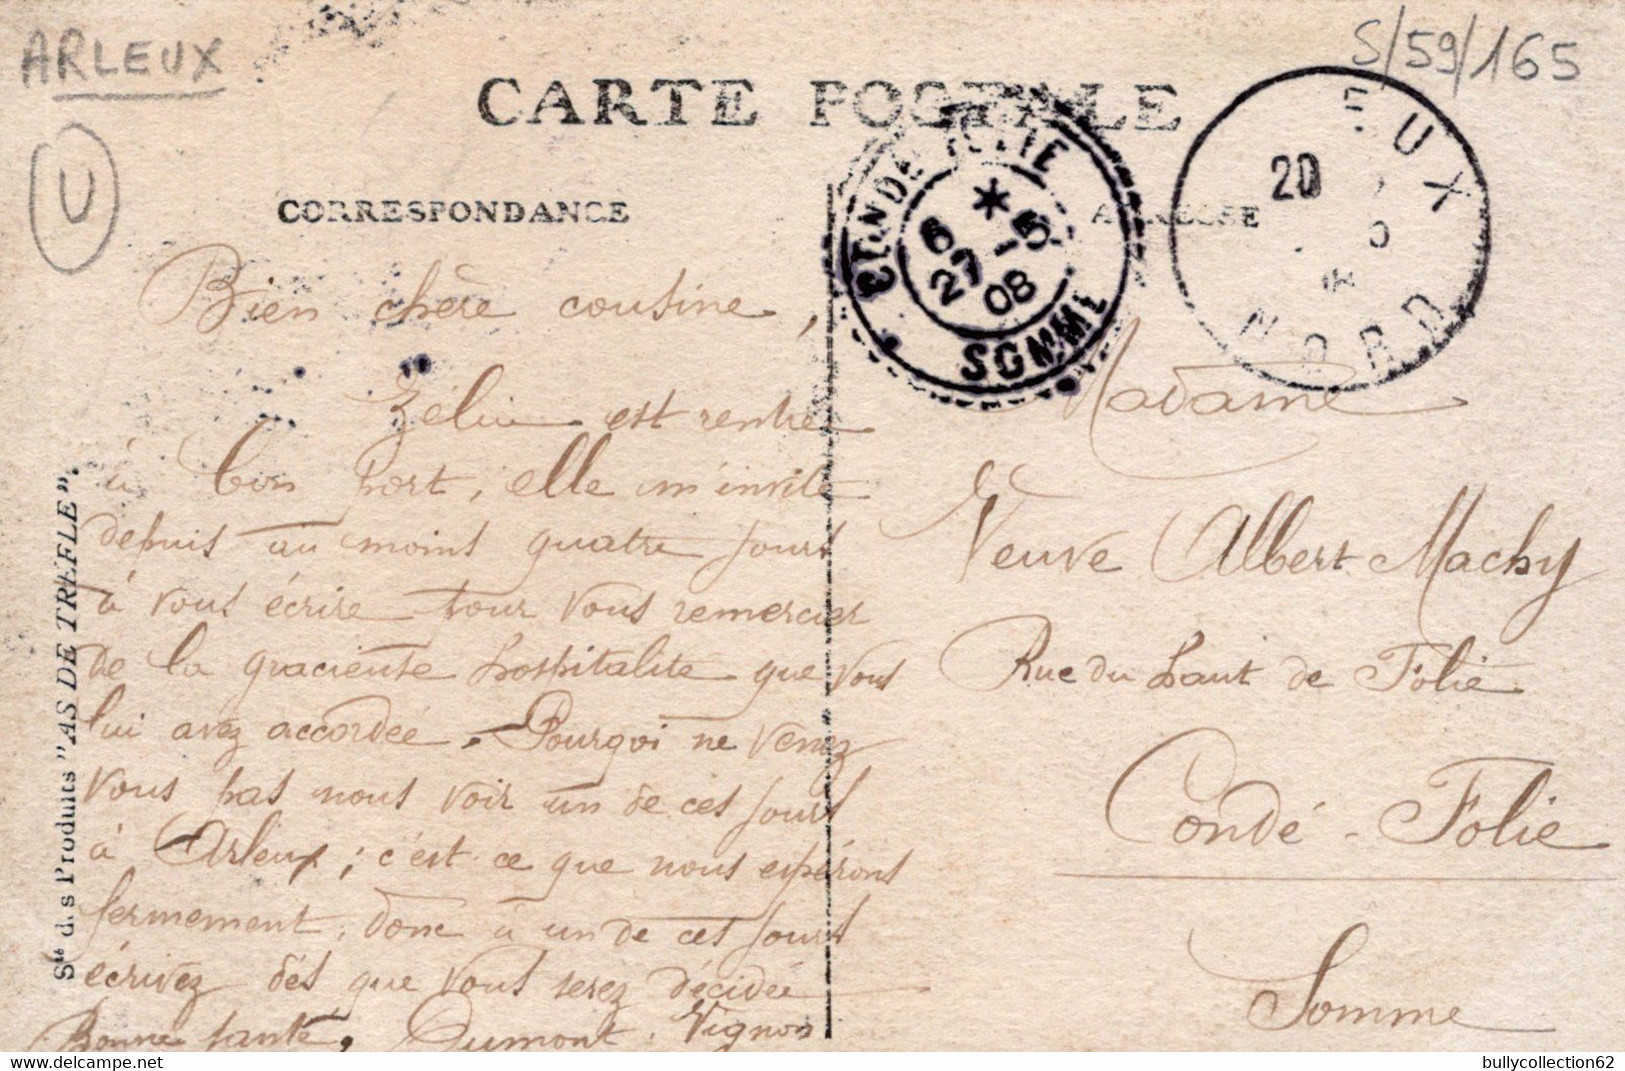 ARLEUX
U
S/59/165
CARTE POSTALE
CORRESPONDANCE
ADRESSE
CONDE FOLIE
6 * 5
27 - 5
08
SOMME
EUX
20
NORD
Bien chère cousine,
Zélie est rentré
à bon port, elle m'invite
depuis au moins quatre jours
à vous écrire pour vous remercier
de la gracieuse hospitalité que vous
lui avez accordée. Pourqoi ne venez
vous pas nous voir un de ces jours
à Arleux; c'est ce que nous espérons
fermement, donc à un de ces jours
écrivez dès que vous serez décidée
Bonne santé, Dumont. Vignon
Madame
Veuve Albert Machy
Rue du haut de Folie
Condé-Folie
Somme
Sté d.s Produits "AS DE TREFLE".
bullycollection62